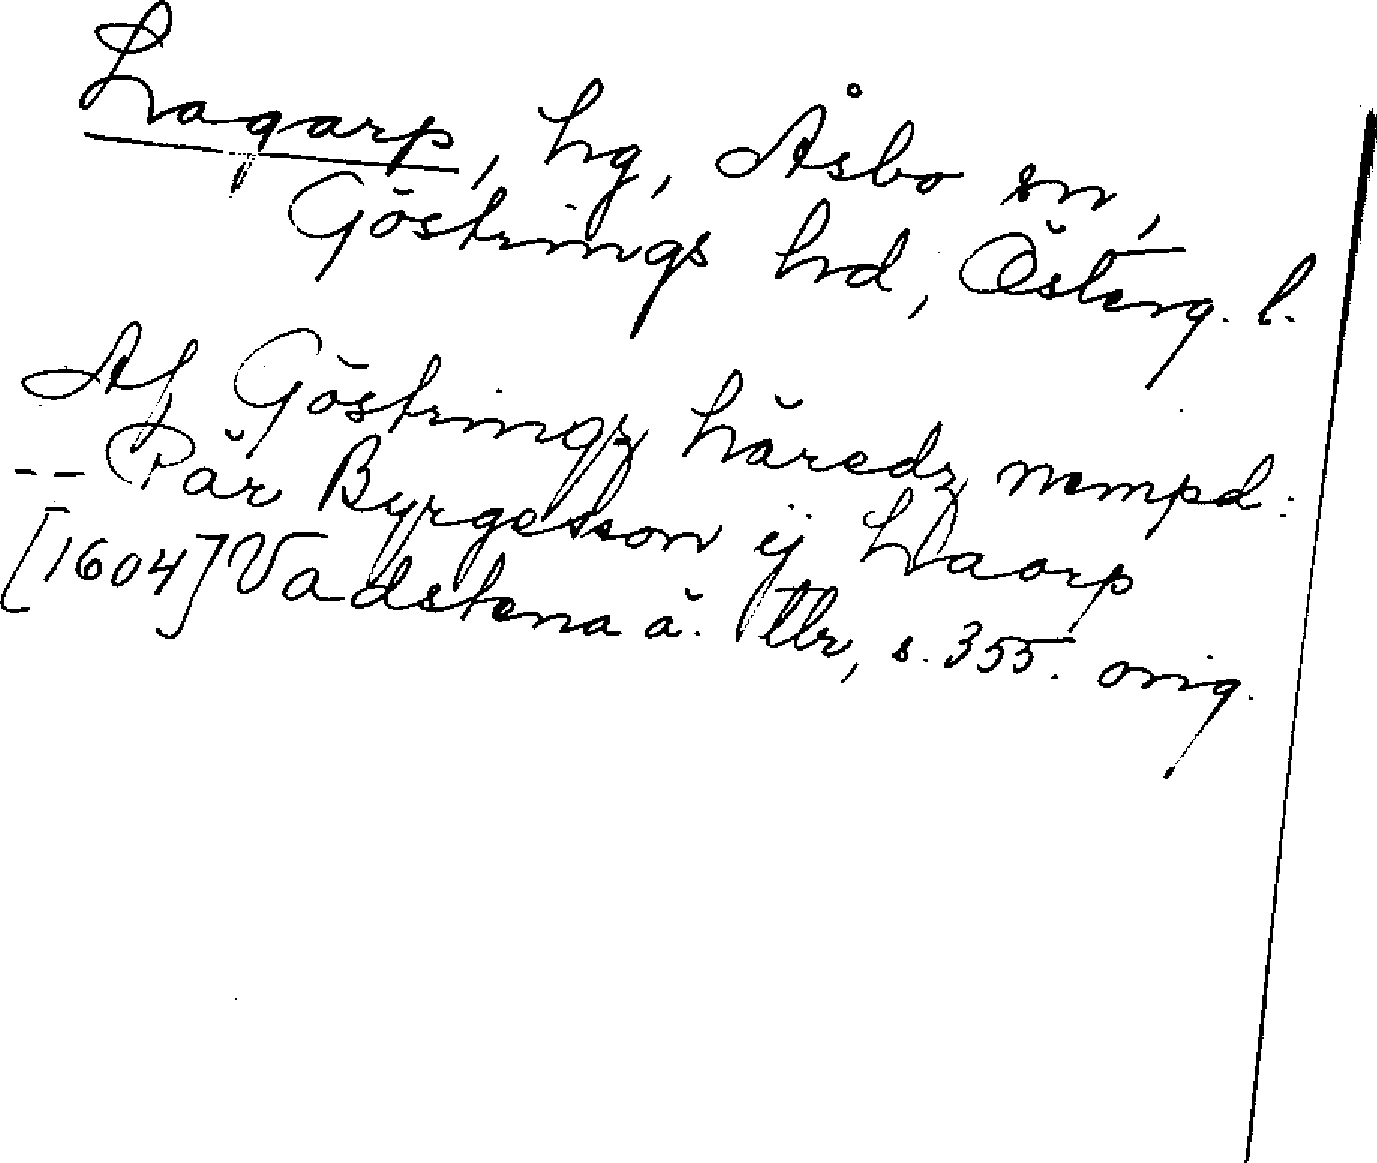 Lagarp, hg, Åsbo sn,
Göstrings hrd, Österg. l.
Af Göstringz häredz nempd:
-- Pär Byrgesson ij Laarp
[1604] Vadstena ä. tbr, s. 355. orig.